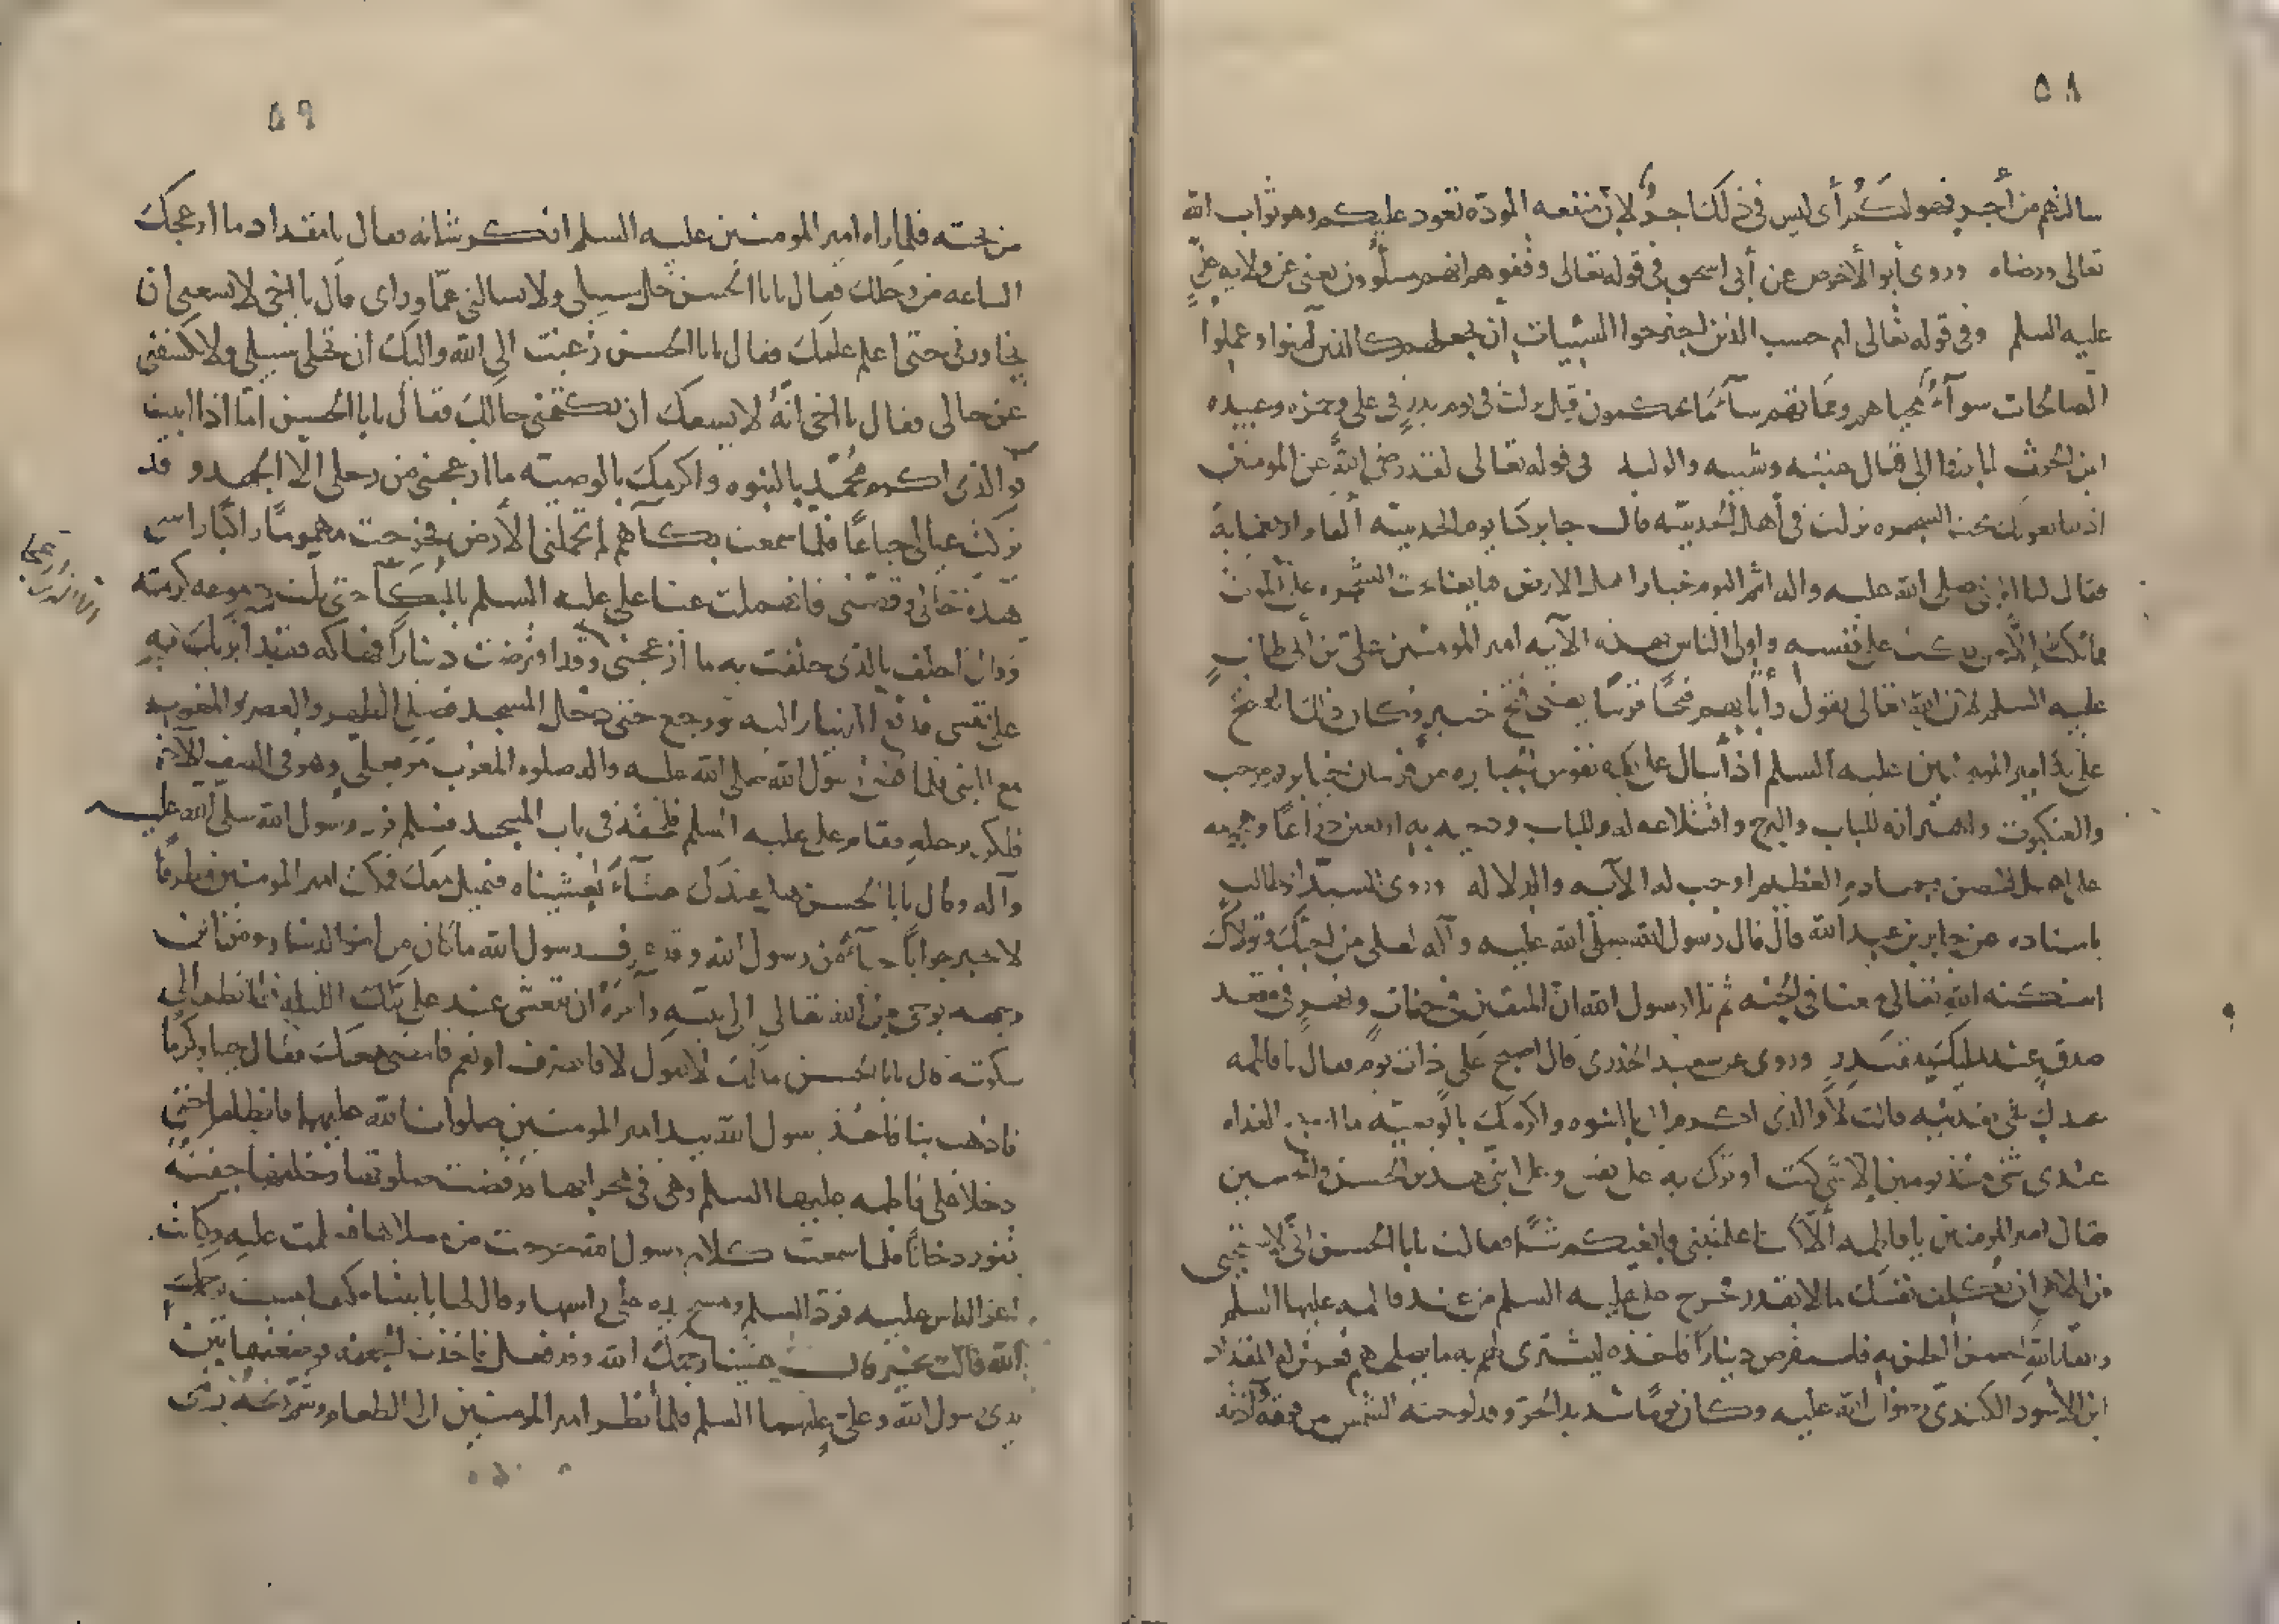 ٥٨
سالتهم من أجر فهو لكم أي ليس في ذلك اجرٌ لان منفعه المودّه تعود عليكم وهو ثواب الله
تعالى ورضاه وروى أبو الأخوص عن أبي اسحق في قوله تعالى وقفوهم انهم مسئولون يعني عن ولايه عليٍّ
عليه السلم وفي قوله تعالى ام حسب الذين اجترحوا السيئات أن نجعلهم كالذين آمنوا وعملوا
الصالحات سوآءً محياهم ومماتهم سآءَ ما يحكمون قيل نزلت في يوم بدرٍ في علي وحمزه وعبيده
ابن الحرث لما برزوا الى قتال عتبه وشيبه والوليد في قوله تعالى لقد رضي الله عن المومنين
اذ يبايعونك تحت الشجره نزلت في أهل الحديبيّه قال جابر كنا يوم الحديبيّه ألفا واربعمايه
فقال لنا النبي صلى الله عليه واله انتم اليوم خيار اهل الارض فبايعنا تحت الشجره على الموت
فما نكث إلّا من نكث على نفسه وأولى الناس بهذه الآيه امير المومنين علي بن أبي طالبٍ
عليه السلم لان الله تعالى يقول وأثابهم فتحًا قريبًا يعني فتح خيبر وكان ذلك الفتح
على يد امير المومنين عليه السلم اذ أسال على يديه نفوس
والعنكبوت وللباب والبرج واقتلاعه له وللباب به اربعين ذراعًا
على اهل الحصن العظيم اوجب له الآيه والدلاله وروى السيد ابو طالب
باسناده عن جابر بن عبد الله قال قال رسول الله صلّى الله عليه وآله لعلي من احبّك وتولاك
اسكنه الله تعالى معنا في الجنه ثم تلا رسول الله انّ المتقين في جنات ونهرٍ في مقعد
صدقٍ عند مليكٍ مقتدرٍ وروى عن سعيد الخدري قال اصبح علي ذات يوم فقال يا فاطمه
عندك شي تغدينيه قالت لا والذي اكرم ابي بالنبوه واكرمك بالوصيّه ما اصبح الغداه
عندي شي منذ يومين إلا شي كنت اوثرك به على نفسي وعلى ابنيّ هذين الحسن والحسين
فقال امير المومنين يا فاطمه ألّا كنت اعلمتيني فابغيكم شيًا فقالت يابا الحسن انّي لاستحيي
من الاهي ان تكلف نفسك مالا تقدر فخرج علي عليه السلم من عند فاطمه عليها السلم
واثقًا بالله احسن الظن به فاستقرض دينارًا فاخذه ليشتري لهم به ما يصلحهم فعرض له المقداد
ابن الأسود الكندي رضوان الله عليه وكان يومًا شديد الحرّ وقد لوحته الشمس من فوقه وآذته
٥٩
من تحته فلما راه امير المومنين عليه السلم انكر شانه فقال يا مقداد ما ازعجك
الساعه من رحلك فقال يابا الحسن خل سبيلي ولا تسالني عمّا وراي قال يا اخي لا يسعني ان
تجاوزني حتى اعلم علمك فقال يابا الحسن رغبت الى الله واليك ان تخلي سبيلي ولا تكشفني
عن حالي فقال يا اخي انّهُ لا يسعك ان تكتمني حالك فقال يابا الحسن امّا اذا ابيت
فو الذي اكرم محمّد بالنبوه واكرمك بالوصيه ما ازعجني من رحلي إلا الجهد وقد
تركت عيالي جياعًا فلما سمعت بكآهم لم تحملني الأرض فخرجت مهمومًا راكبًا راسي
هذه حالي وقصتي فانهملت عينا علي عليه السلم بالبكآ حتى بلّت دموعه كريمته
وقال احلف بالذي حلفت به ما ازعجني وقد اقترضت دينارًا فهاكه فقد آثرتك به
على نفسي فدفع الدينار اليه ورجع حتى دخل المسجد فصلى الظهر والعصر والمغرب
مع النبي فلما قضى رسول الله صلى الله عليه واله صلوه المغرب مرّ بعلي وهو في الصف الآخر
فلكزه برجله فقام علي عليه السلم فلحقه في باب المسجد فسلم فرد رسول الله صلّى الله عليه
وآله وقال يابا الحسن هل عندك عشآءً تعشيناه فنميل معك فمكث امير المومنين مطرقًا
لا يحير جوابًا حيآءً من رسول الله وقد عرف رسول الله ما كان من امر الدينار ومن اين
وجهه بوحي من الله تعالى الى نبيّه وآمرهُ ان يتعشى عند علي تلك الليله فلما نظر الى
سكوته قال يابا الحسن مالك لا تقول لا فانصرف او نعم فامضي معك فقال حبًا وكرمًا
فاذهب بنا فاخذ رسول الله بيد امير المومنين صلوات الله عليهما فانطلقا حتى
دخلا على فاطمه عليها السلم وهي في محرابها قد قضت صلوتها وخلفها جفنه
تفور دخانًا فلما سمعت كلام رسول الله خرجت من مصلاها فسلمت عليه وكانت
اعز الناس عليه فردّ السلم ومسح يده على راسها وقال لها يا بنتاه كيف امسيت رحمك
الله قالت بخير قال عشينا رحمك الله وقد فعل فاخذت الجفنه فوضعتها بين
يدي رسول الله وعلي عليهما السلم فلما نظر امير المومنين الى الطعام وشم ريحه رمى